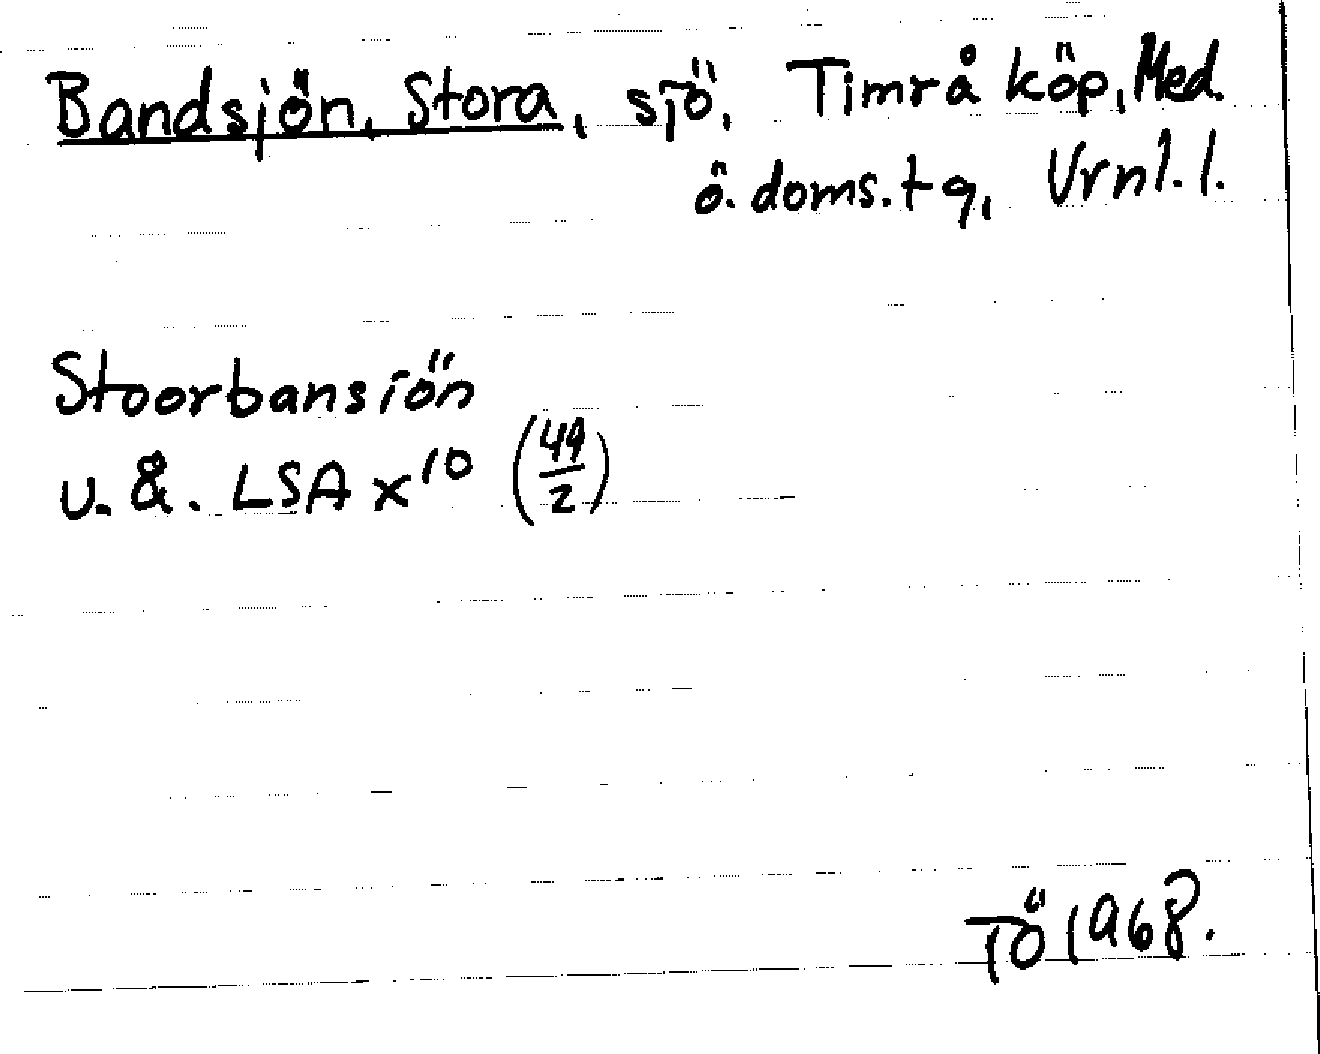 Bandsjön, Stora, sjö, Timrå köp, Med.
ö. doms.tg, Vrnl.l.
Stoorbansiön
u. å. LSA x10 (49/2)
TÖ 1968.